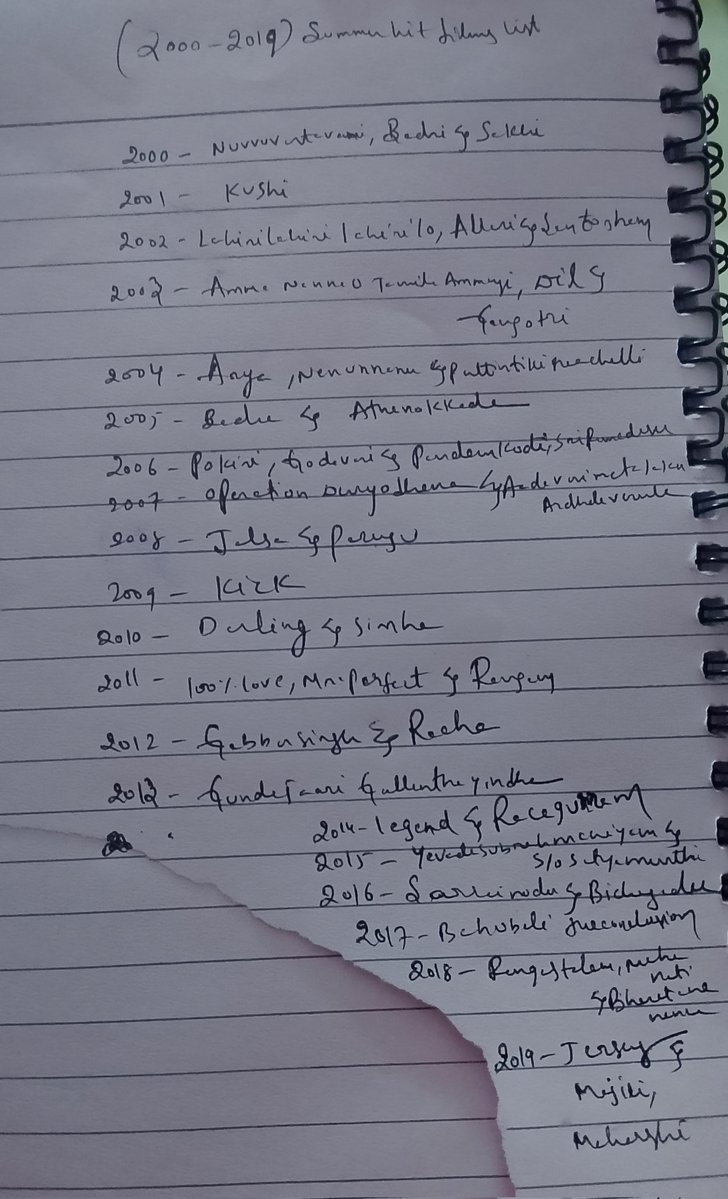 (2000-2019) Summer hit films list
2000 - Nuvvuvastavani, Badri & Sakhi
2001 - Kushi
2002 - Lahirilahirilahirilo, Allari & Santosham
2003 - Amma Nanna O Tamila Ammayi, Dil &
Gangotri
2004 - Arya, Nenunnanu & puttintiki raachelli
2005 - Badra & Athanokkade
2006 - Pokiri, Godavari & Pandemkodi, Sri Ramadasu
2007 - operation Duryodhana & Aadavarimatalaku
Ardhaleverule
2008 - Jalsa & parugu
2009 - Kick
2010 - Darling & simha
2011 - 100% love, Mr. perfect & Rangam
2012 - Gabbarsingh & Racha
2013 - GundeJaari Gallanthayindha
2014 - legend & Racegurram
2015 - Yevadesubrahmaniyam &
S/o Satyamurthi
2016 - Sarrainodu & Bichagadu
2017 - Bahubali the conclusion
2018 - Rangastalam, maha
nati
& Bharat ane
nenu
2019 - Jersey &
Majili,
Maharshi